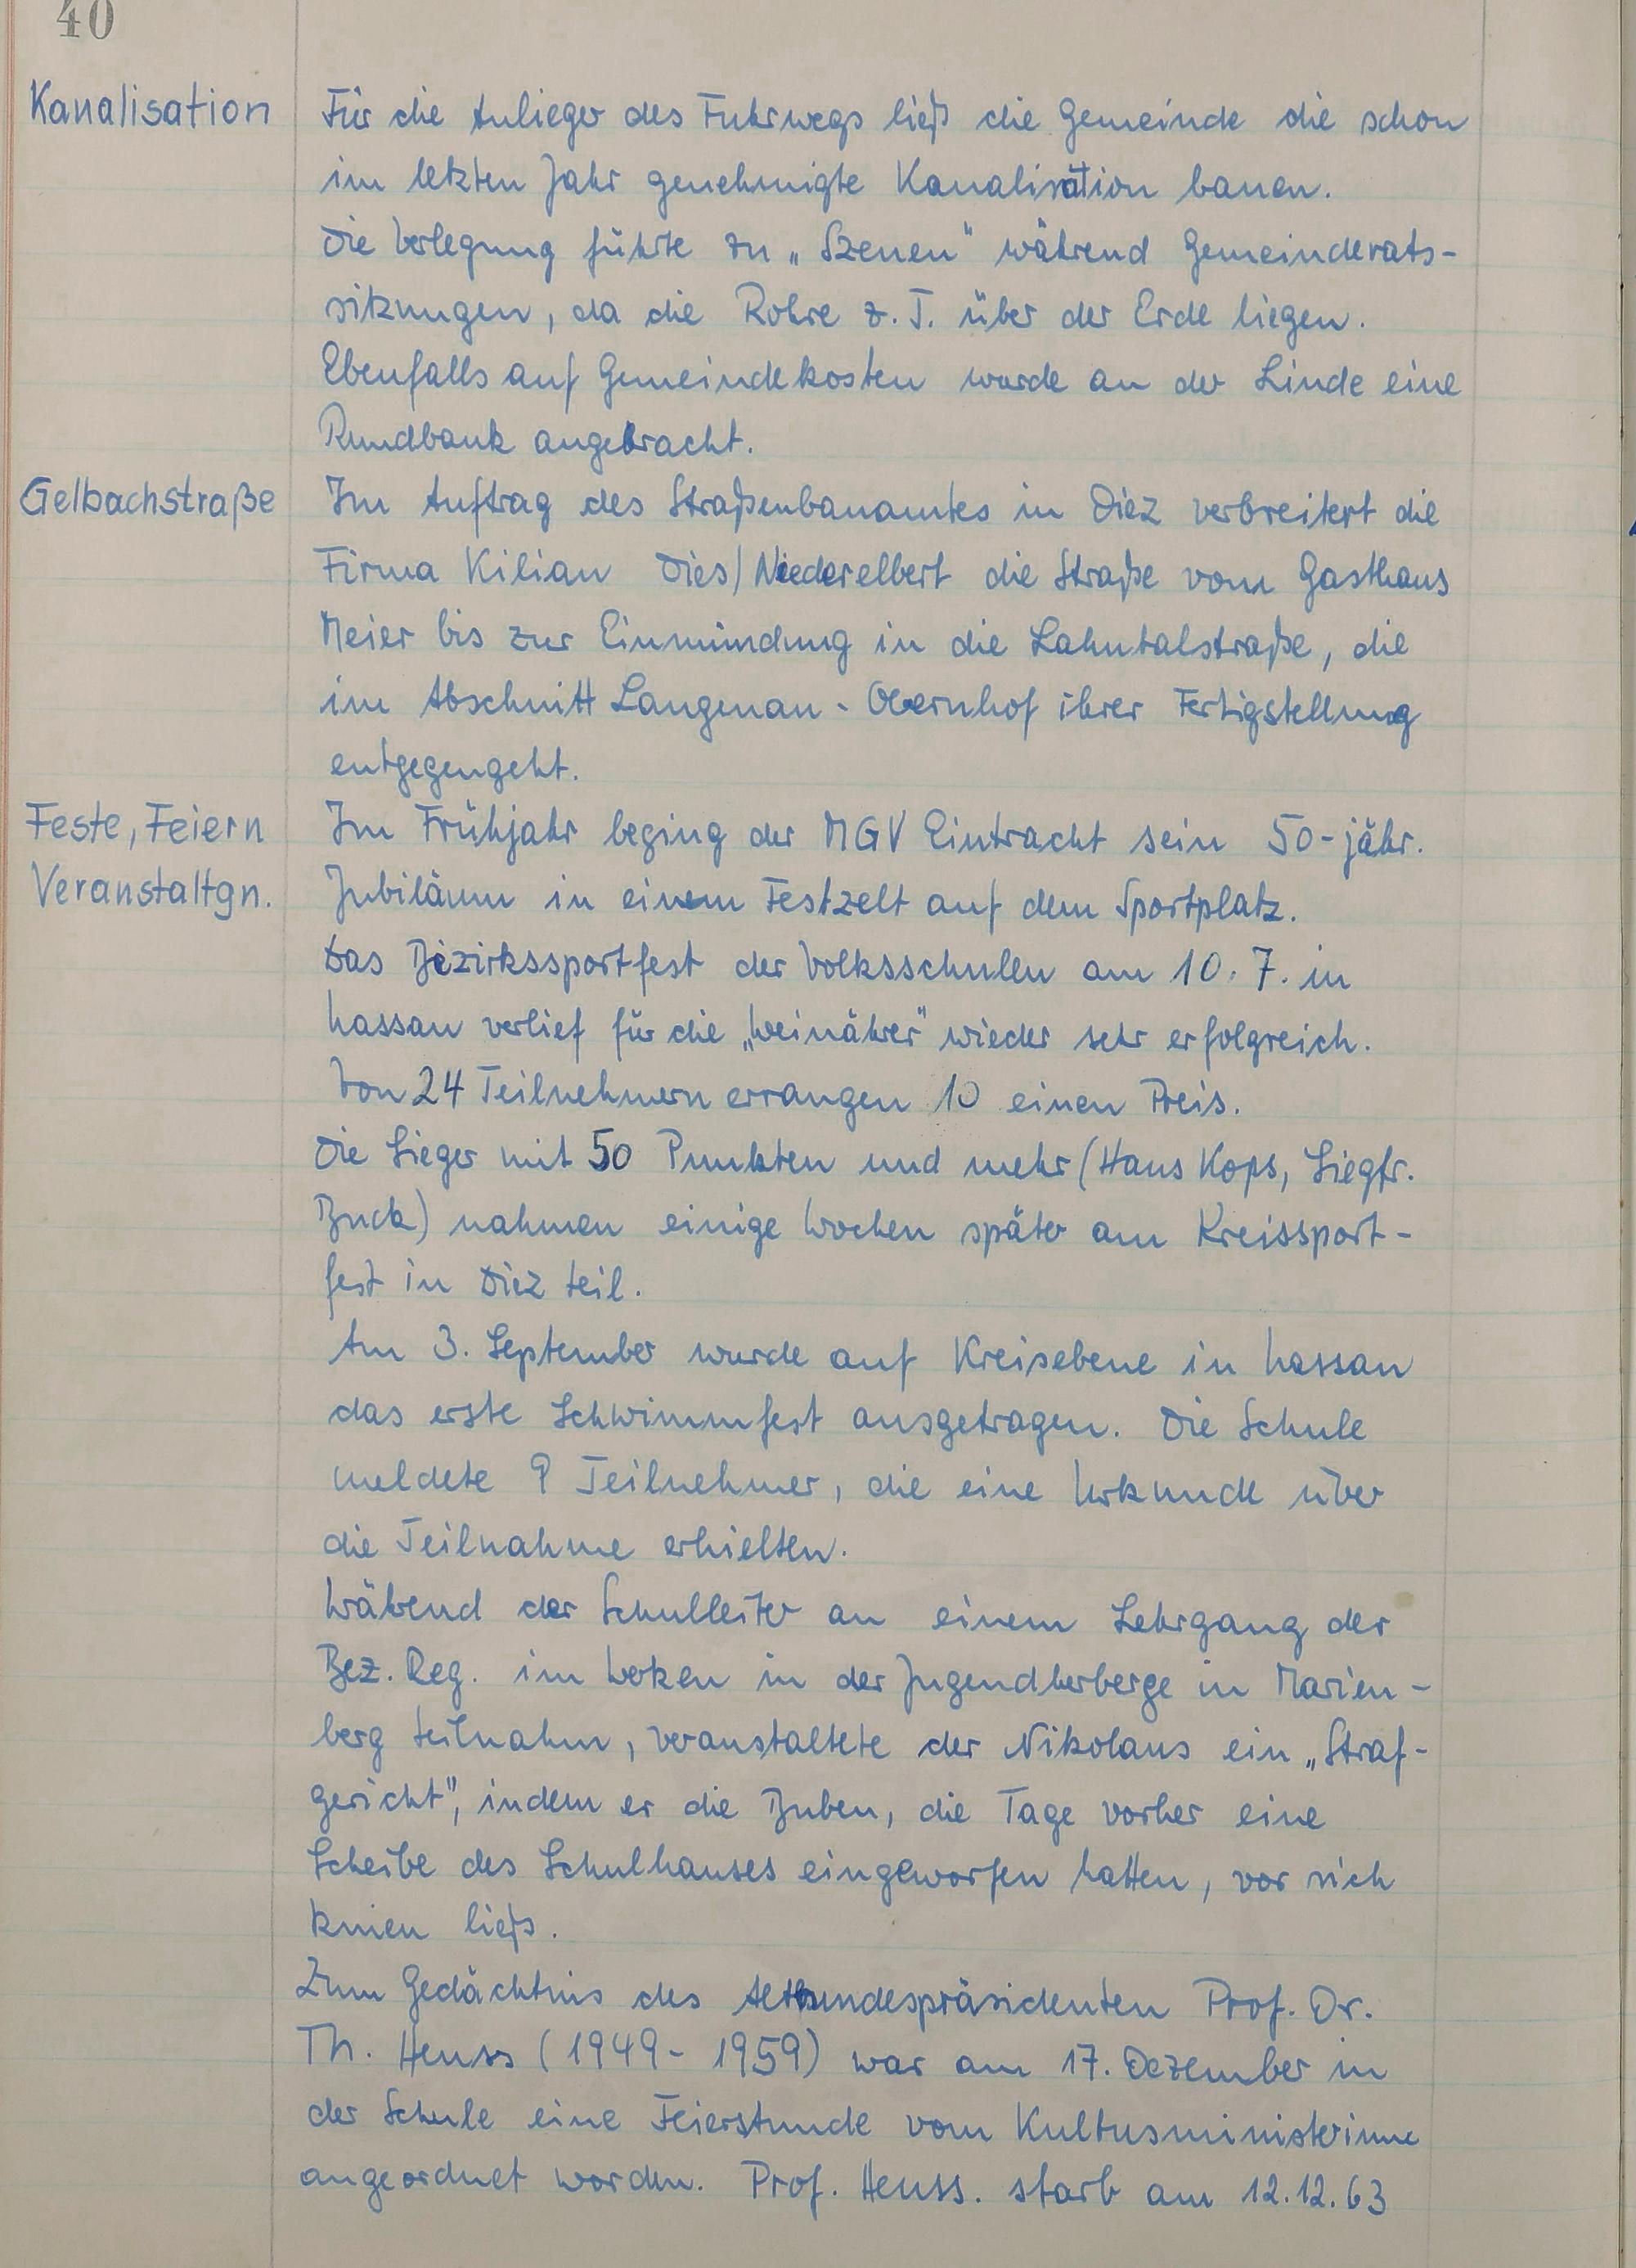 40
Kanalisation
Für die Anlieger des Fuhrwegs ließ die Gemeinde die schon
im letzten Jahr genehmigte Kanalisation bauen.
Die Verlegung führte zu „Szenen" während Gemeinderats-
sitzungen, da die Rohre z. T. über der Erde liegen.
Ebenfalls auf Gemeindekosten wurde an der Linde eine
Rundbank angebracht.
Gelbachstraße
Im Auftrag des Straßenbauamtes in Diez verbreitert die
Firma Kilian Dies/Niederelbert die Straße vom Gasthaus
Meier bis zur Einmündung in die Lahntalstraße, die
im Abschnitt Langenau - Obernhof ihrer Fertigstellung
entgegengeht.
Feste, Feiern
Veranstaltgn.
Im Frühjahr beging der MGV Eintracht sein 50-jähr.
Jubiläum in einem Festzelt auf dem Sportplatz.
Das Bezirkssportfest der Volksschulen am 10. 7. in
Nassau verlief für die „Weinährer" wieder sehr erfolgreich.
Von 24 Teilnehmern errangen 10 einen Preis.
Die Sieger mit 50 Punkten und mehr (Hans Kops, Siegfr.
Buck) nahmen einige Wochen später am Kreissport-
fest in Diez teil.
Am 3. September wurde auf Kreisebene in Nassau
das erste Schwimmfest ausgetragen. Die Schule
meldete 9 Teilnehmer, die eine Urkunde über
die Teilnahme erhielten.
Während der Schulleiter an einem Lehrgang der
Bez. Reg. im Werken in der Jugendherberge in Marien-
berg teilnahm, veranstaltete der Nikolaus ein „Straf-
gericht", indem er die Buben, die Tage vorher eine
Scheibe des Schulhauses eingeworfen hatten, vor sich
knien ließ.
Zum Gedächtnis des Altbundespräsidenten Prof. Dr.
Th. Heuss (1949 - 1959) war am 17. Dezember in
der Schule eine Feierstunde vom Kultusministerium
angeordnet worden. Prof. Heuss. starb am 12.12.63